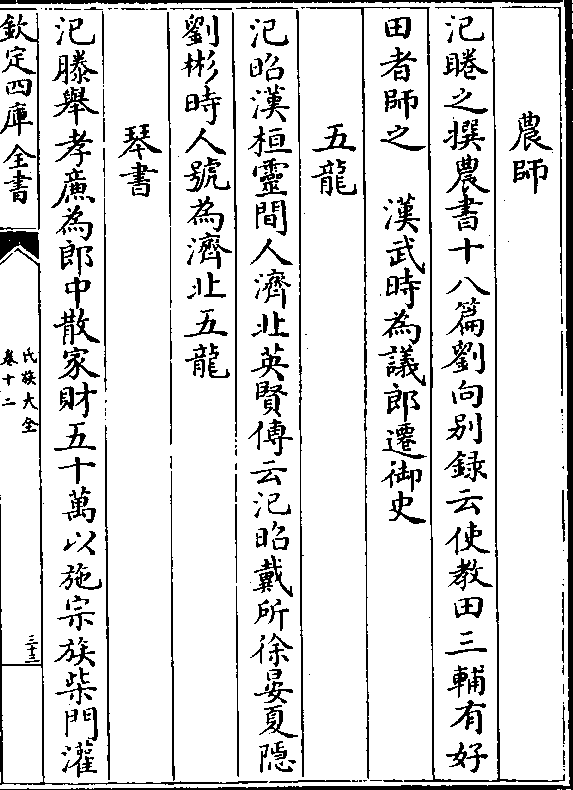 農師
氾𣈶之撰農書十八篇劉向别録云使教田三輔有好
田者師之　漢武時為議郎遷御史
五龍
氾昭漢桓靈間人濟北英賢傳云氾昭戴所徐晏夏隠
劉彬時人號為濟北五龍
琴書
氾滕舉孝㢘為郎中散家財五十萬以施宗族柴門灌
欽定四庫全書
氏族大全
卷十二
三十三